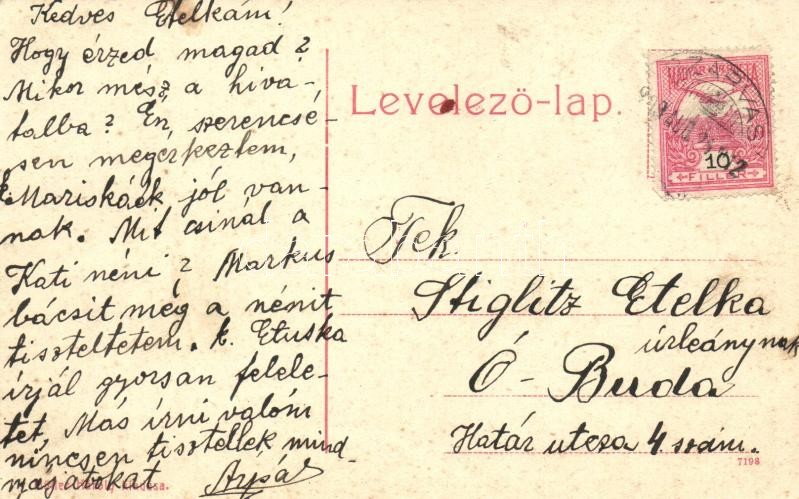 Kedves Etelkám!
Hogy érzed magad?
Mikor mész a hiva-
talba? Én, szerencsé-
sen megérkeztem,
Mariskáék jól van-
nak. Mit csinál a
Kati néni? Markus
bácsit meg a nénit
tiszteltetem. k. Etuska
írjál gyorsan felele-
tet, Más írni valóm
nincsen tisztellek mind-
nyájatokat Árpád
Levelező-lap.
MAGYAR KIR. POSTA
10
FILLÉR
Tek.
Stiglitz Etelka
úrleánynak
Ó-Buda
Határ utcza 4 szám.
7198
kiadása.